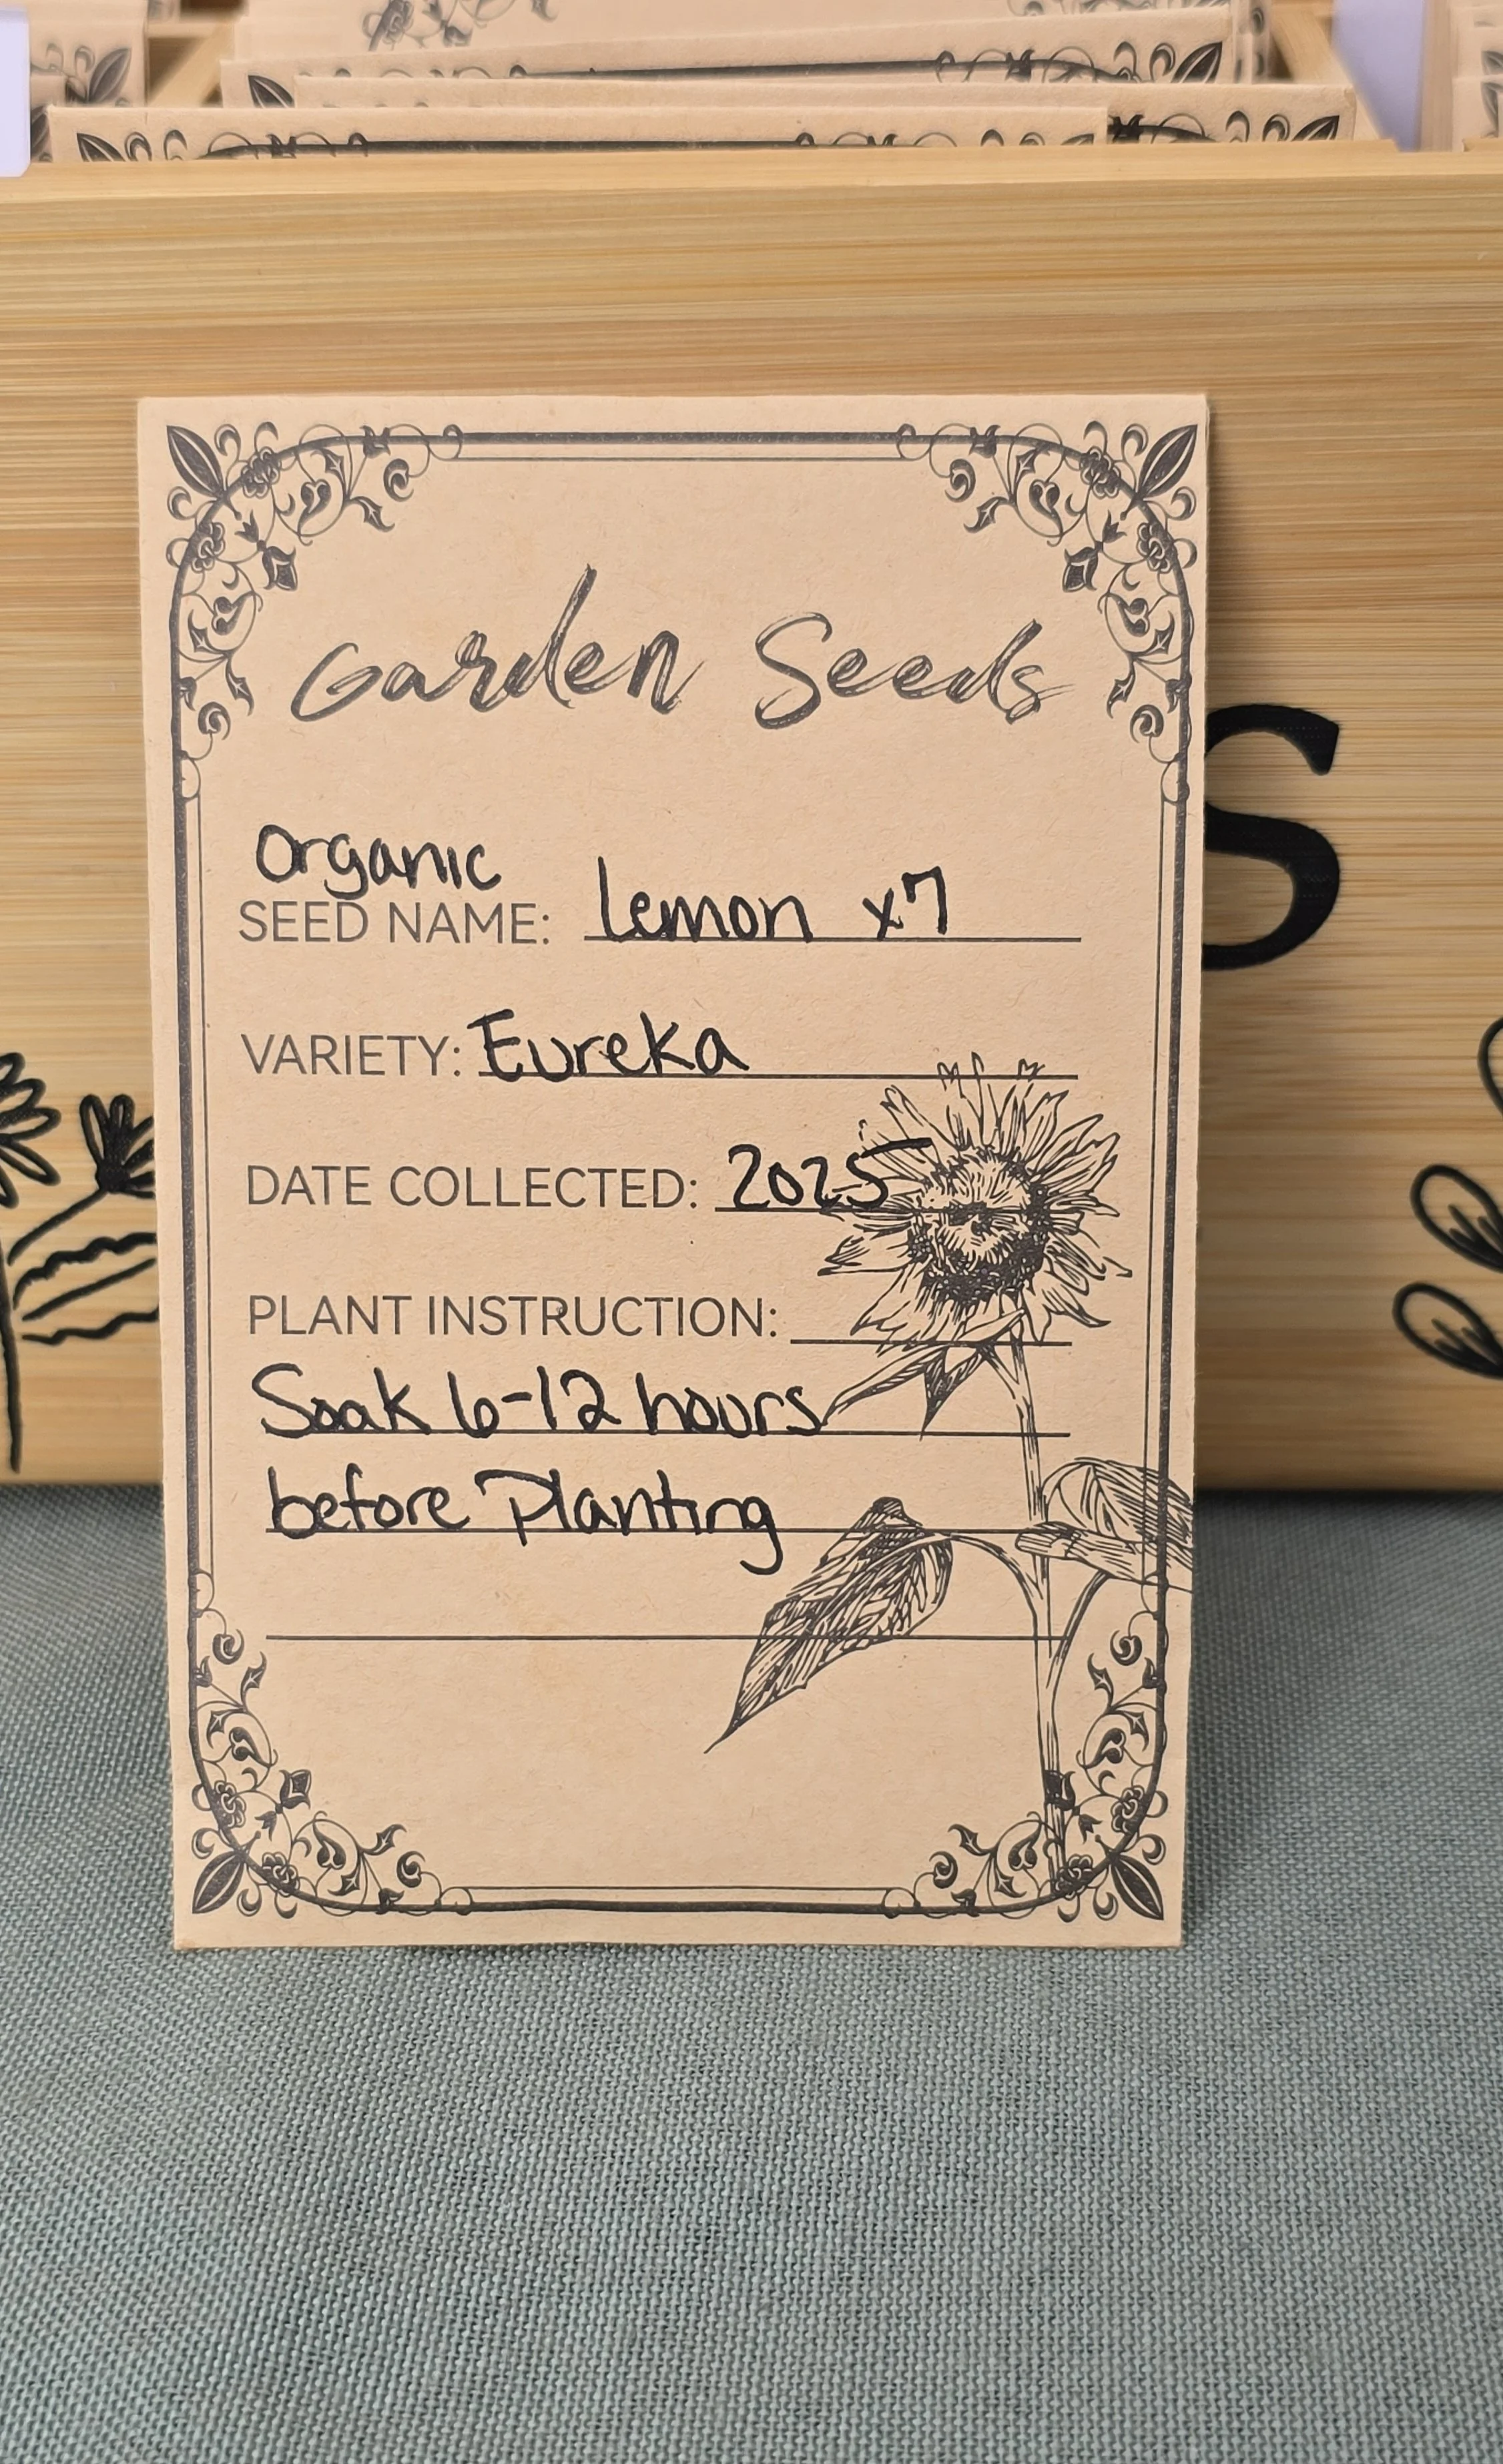 Garden Seeds
Organic
SEED NAME: Lemon x7
VARIETY: Eureka
DATE COLLECTED: 2025
PLANT INSTRUCTION:
Soak 6-12 hours
before Planting
S